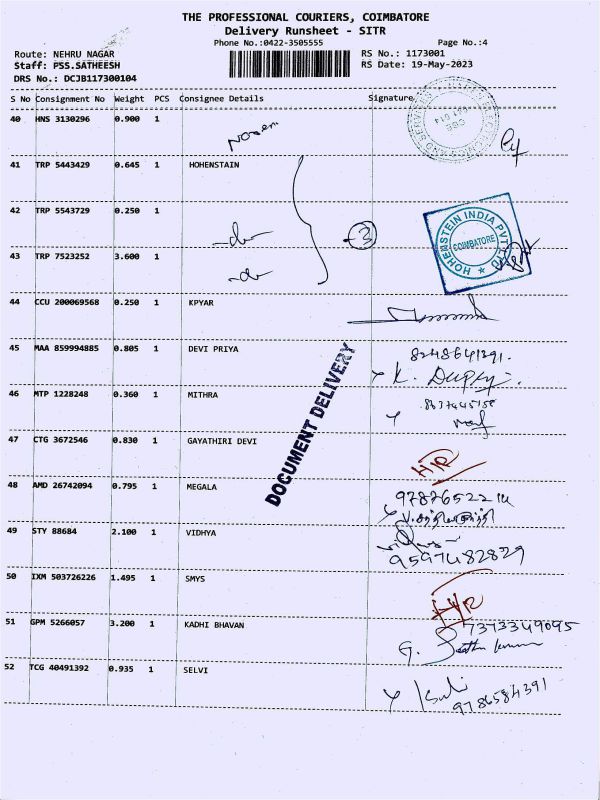 THE PROFESSIONAL COURIERS, COIMBATORE
Delivery Runsheet - SITR
Phone No.:0422-3505555 Page No.:4
Route: NEHRU NAGAR RS No.: 1173001
Staff: PSS.SATHEESH RS Date: 19-May-2023
DRS No.: DCJB117300104
S No Consignment No Weight PCS Consignee Details Signature
40 HNS 3130296 0.900 1
41 TRP 5443429 0.645 1 HOHENSTAIN
42 TRP 5543729 0.250 1
-do- 3
HOHENSTEIN INDIA PVT LTD
COIMBATORE
43 TRP 7523252 3.600 1
-do-
44 CCU 200069568 0.250 1 KPYAR
45 MAA 859994885 0.805 1 DEVI PRIYA 8248641391.
DOCUMENT DELIVERY
46 MTP 1228248 0.360 1 MITHRA
47 CTG 3672546 0.830 1 GAYATHIRI DEVI
48 AMD 26742094 0.795 1 MEGALA
49 STY 88684 2.100 1 VIDHYA
9597482829
50 IXM 503726226 1.495 1 SMYS
51 GPM 5266057 3.200 1 KADHI BHAVAN 7373349095
52 TCG 40491392 0.935 1 SELVI
9786584391